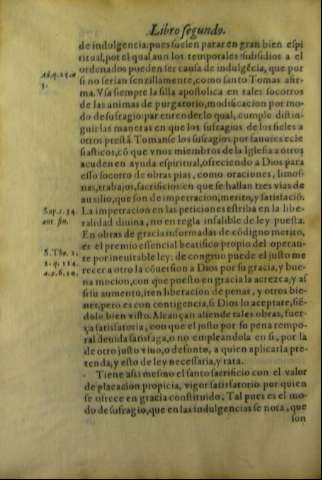 Libro segundo.
de indulgencia: pues suelen parar en gran bien espi
ritual, por el qual aun los temporales subsidios a el
ordenados pueden ser causa de indulgēcia, que por
si no serian senzillamente, como santo Tomas afir-
ma. Vsa siempre la silla apostolica en tales socorros
de las animas de purgatorio, modificacion por mo-
do de sufragio: par entender lo qual, cumple distin-
guir las maneras en que los sufragios de los fieles a
otros prestā. Tomanse los sufragios por fauores ecle
siasticos, cō que vnos miembros de la Iglesia a otros
acuden en ayuda espiritual, ofreciendo a Dios para
esso socorro de obras pias, como oraciones, limos-
nas, trabajos, sacrificios: en que se hallan tres vias de
auxilio, que son de impetracion, merito, y satisfaciō.
La impetracion en las peticiones estriba en la libe-
ralidad diuina, no en regla infalible de ley puesta.
En obras de gracia informadas de cōdigno merito,
es el premio essencial beatifico propio del operan-
te por ineuitable ley: de congruo puede el justo me
recer a otro la cōuersion a Dios por su gracia, y bue
na mocion, con que puesto en gracia la acrezca, y as
si su aumento, iten liberacion de penas, y otros bie-
nes, pero es con contingencia, si Dios lo aceptare, siē-
dole bien visto. Alcançan aliende tales obras, fuer-
ça satisfatoria, con que el justo por su pena tempo-
ral deuida satisfaga, no empleandola en si, por la
de otro justo viuo, o defunto, a quien aplicarla pre-
tenda, y esto de ley necessaria, y rata.
Tiene assi mesmo el santo sacrificio con el valor
de placacion propicia, vigor satisfatorio por quien
se ofrece en gracia constituido. Tal pues es el mo-
do de sufragio, que en las indulgencias se nota, que
son